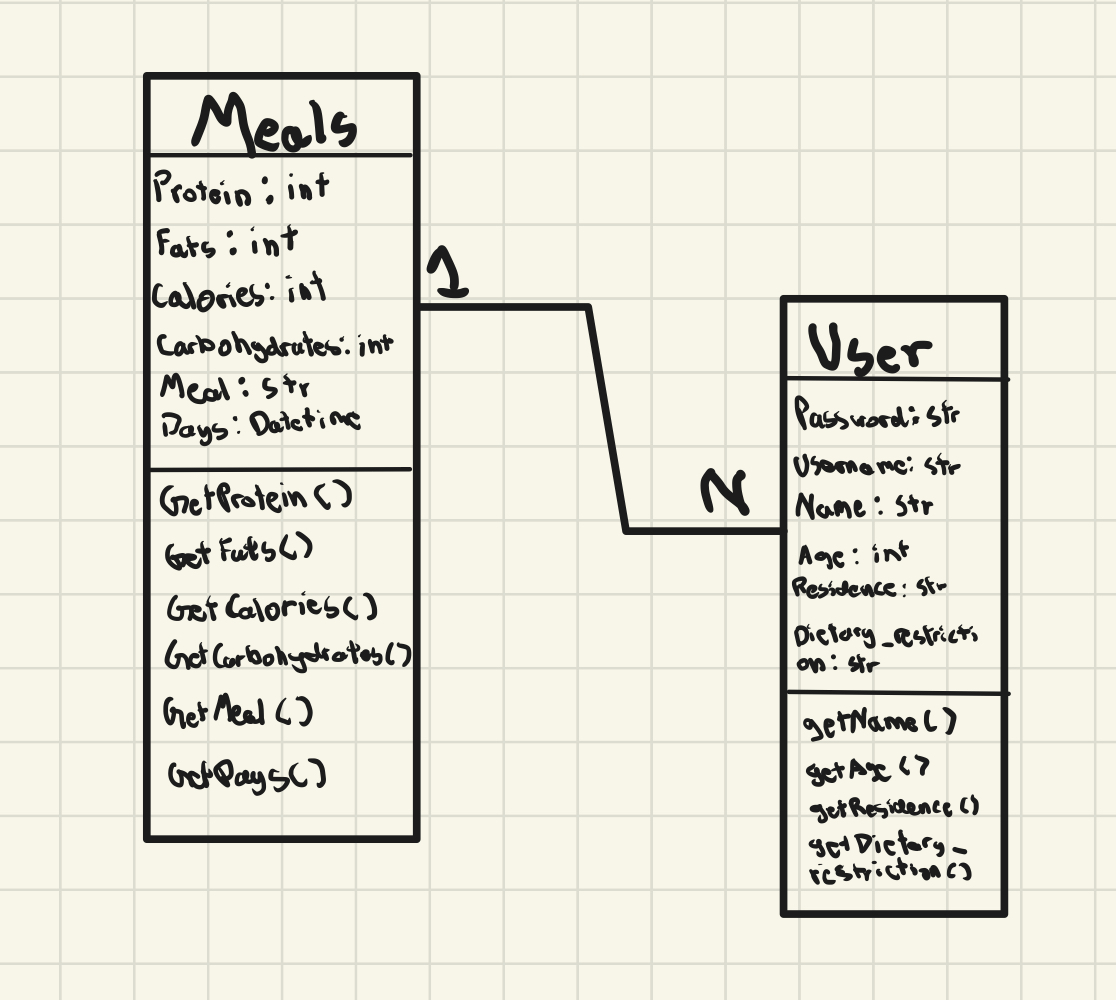 Meals
Protein: int
Fats: int
Calories: int
Carbohydrates: int
Meal: str
Days: Datetime
GetProtein()
Get Fats()
Get Calories()
GetCarbohydrates()
GetMeal()
GetDays()
1
N
User
Password: str
Username: str
Name: str
Age: int
Residence: str
Dietary_restricti
on: str
getName()
getAge()
getResidence()
getDietary_
restriction()